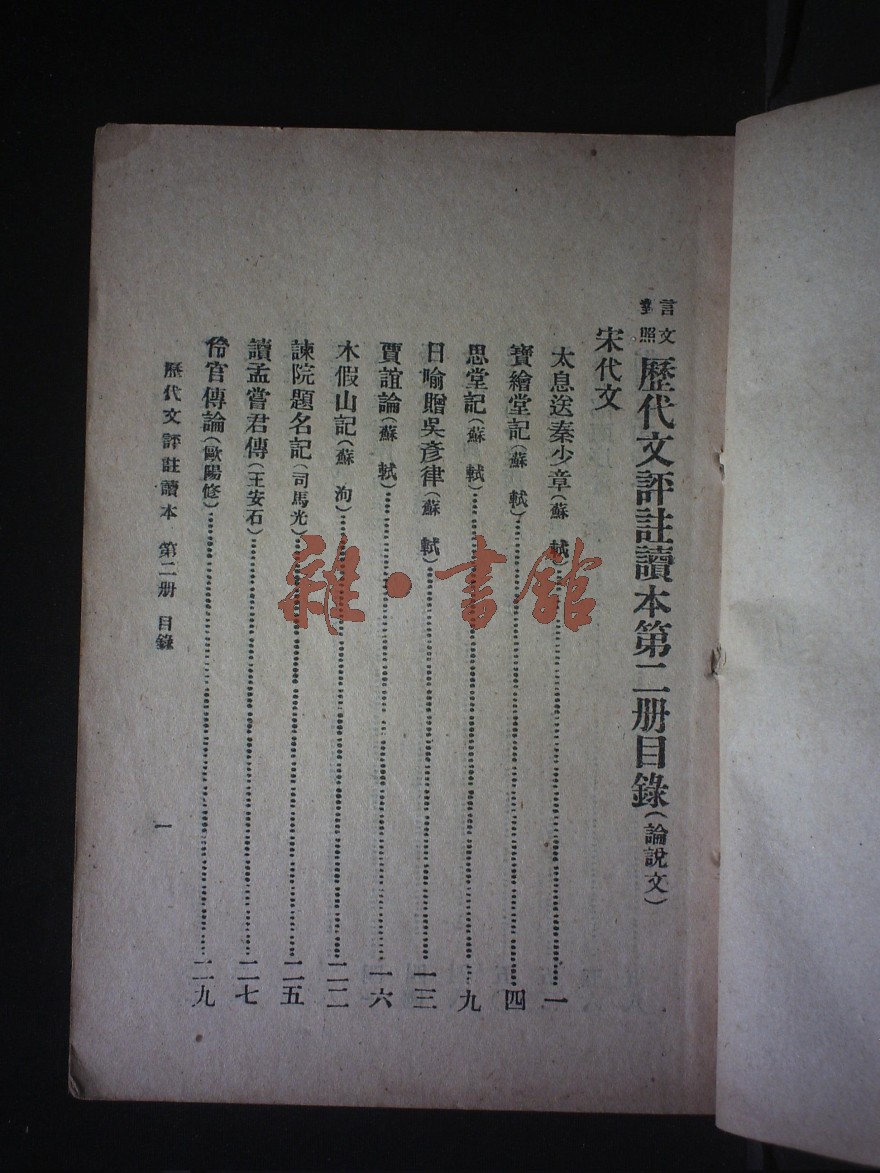 言文對照 歷代文評註讀本第二册目錄(論說文)
宋代文
太息送秦少章(蘇軾)……一
寶繪堂記(蘇軾)……四
思堂記(蘇軾)……九
日喻贈吳彥律(蘇軾)……一三
賈誼論(蘇軾)……一六
木假山記(蘇洵)……二二
諫院題名記(司馬光)……二五
讀孟嘗君傳(王安石)……二七
伶官傳論(歐陽修)……二九
歷代文評註讀本 第二册 目錄
一
雜·書館